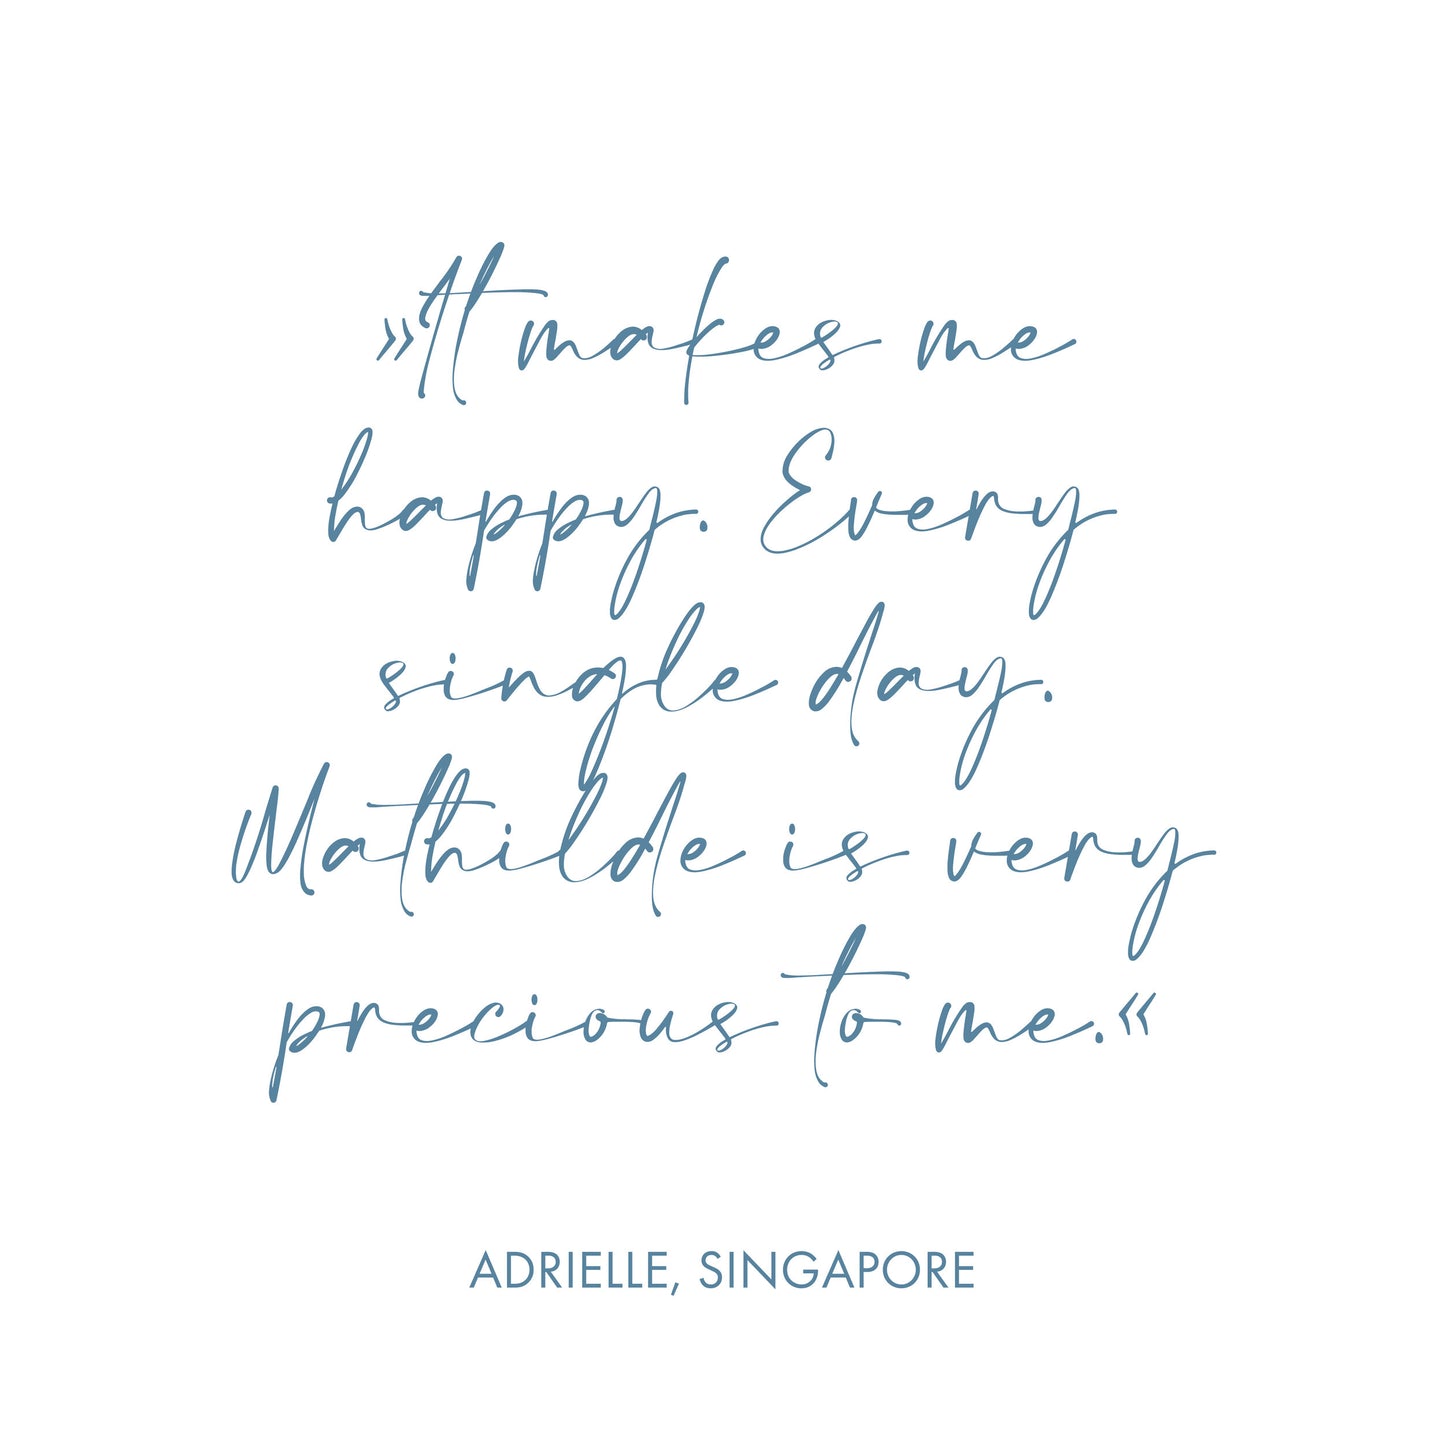 »It makes me
happy. Every
single day.
Mathilde is very
precious to me.«
ADRIELLE, SINGAPORE